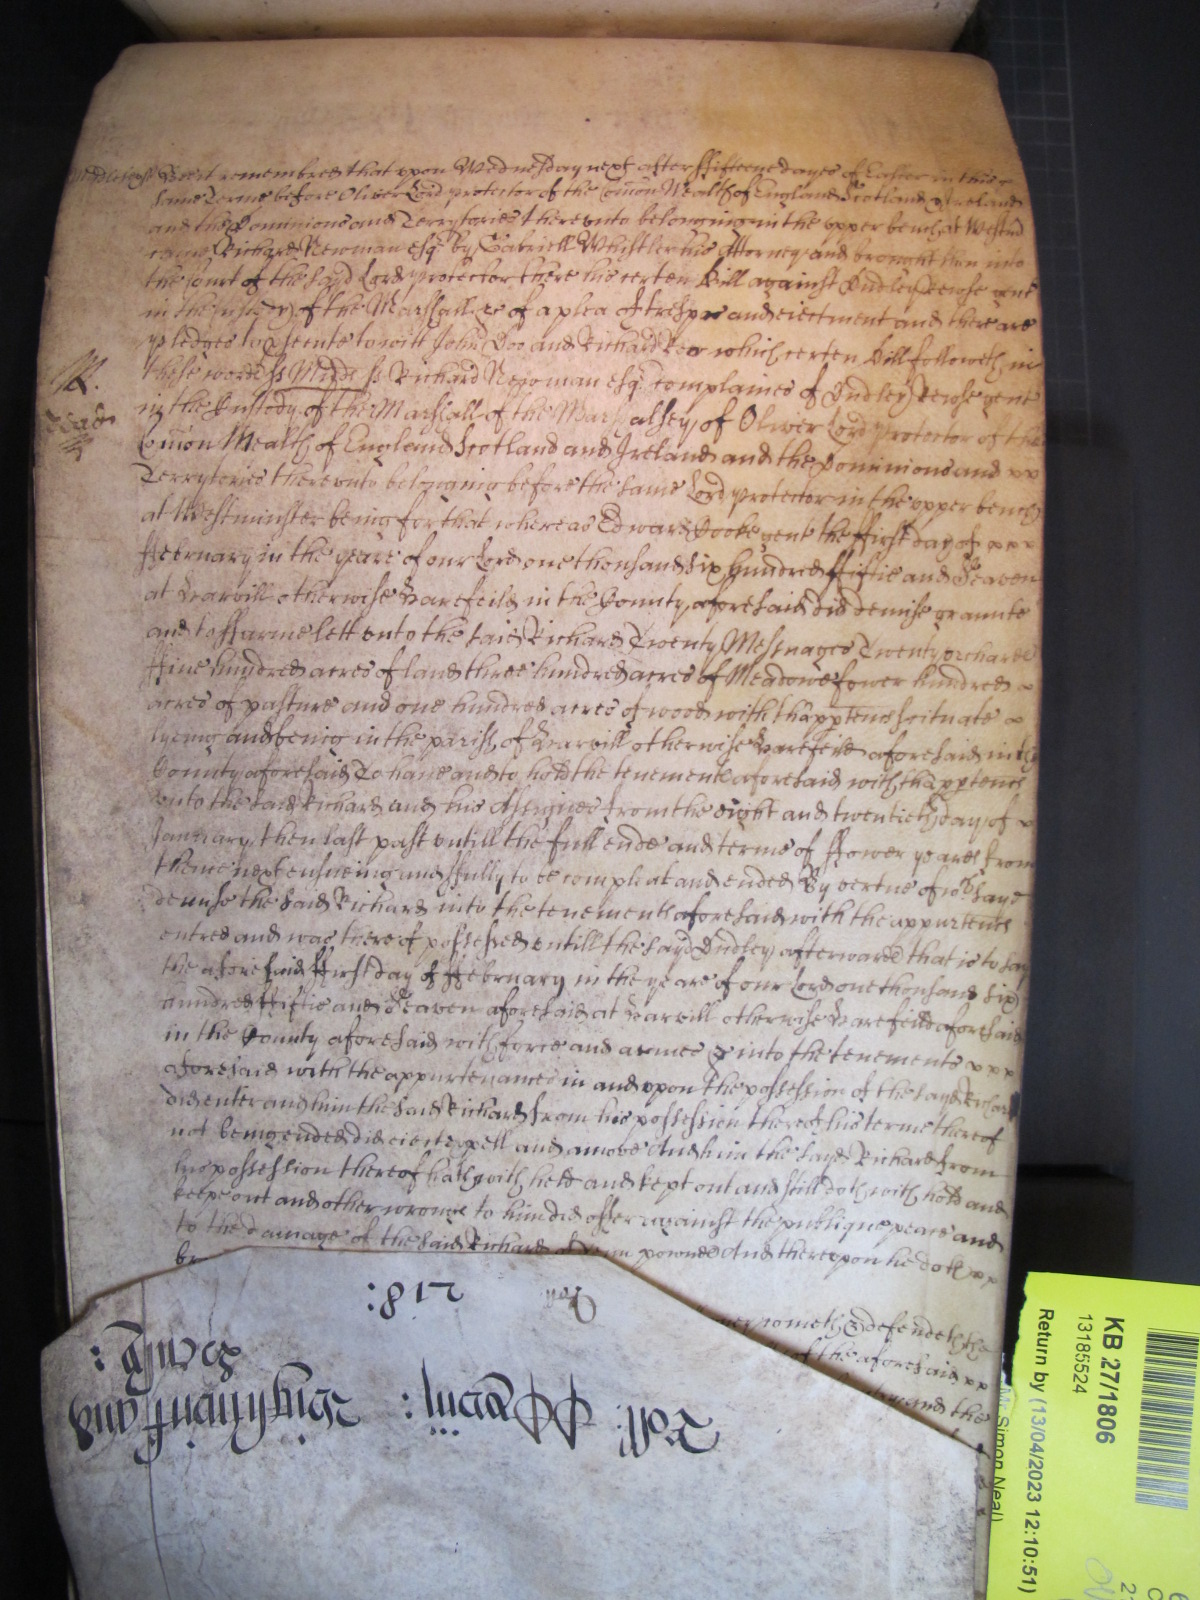 Beeit remembred that upon Wednesday next after ffifteene dayes of Easter in this
same Terme before Oliver Lord protector of the Com̄on Wealth of England Scotland & Ireland
and the Dominions and Terrytories thereunto belonging in the upper bench at Westm̄
came Richard Newman esq by Gabriell Whistler his Attorney and brought here into
the Court of the sayd Lord protector there his certen Bill against Dudley gent
in the custody of the Marshall &c of a plea of trespas and eiectment and there are
pledges to prosecute to witt John Doo and Richard Roo which certen Bill followeth in
these words ss Midds ss Richard Newman esq complaines of Dudley gent
in the Custody of the Marshall of the Marshalsey of Oliver Lord Protector of the
Com̄on Wealth of England Scotland and Ireland and the Dominions and
Terrytories thereunto belonging before the same Lord protector in the upper bench
at Westminster being for that whereas Edward Cooke gent the ffirst day of
ffebruary in the yeare of our Lord one thousand six hundred ffiftie and Seaven
at Harvill otherwise Harefeild in the County aforesaid did demise graunte
and to ffarme lett unto the said Richard Twenty Messuages Twenty orchards
ffive hundred acres of land three hundred acres of Meadowe fower hundred
acres of pasture and one hundred acres of wood with thapptenc̄ scituate
lyeing and being in the parish of Harvill otherwise Harefeild aforesaid in the
County aforesaid To have and to hold the tenements aforesaid with thapptenc̄
unto the said Richard and his Assignes from the eight and twentieth day of
January then last past untill the full ende and terme of ffower yeares from
thence next ensueing and ffully to be compleat and ended By vertue of wch sayd
demise the said Richard into the tenements aforesaid with the appurtenc̄
entred and was thereof possessed untill the sayd Dudley afterwards that is to say
the aforesaid ffirst day of ffebruary in the yeare of our Lord one thousand six
hundred ffiftie and Seaven aforesaid at Harvill otherwise Harefeild aforesaid
in the County aforesaid with force and armes &c into the tenements
aforesaid with the appurtenances in and upon the possession of the sayd Richard
did enter and him the said Richard from his possession thereof his terme thereof
not being ended did eiect expell and amove And him the sayd Richard from
his possession thereof hath with held and kept out and still doth with hold and
keepe out and other wrongs to him did offer against the publique peace and
to the damage of the said Richard of pownds And thereupon he doth
br
cometh & defendeth the
of the aforesaid
and the
Roll:
218:
KB 27/1806
13185524
Return by (13/04/2023 12:10:51)
Mr. Simon Neal)